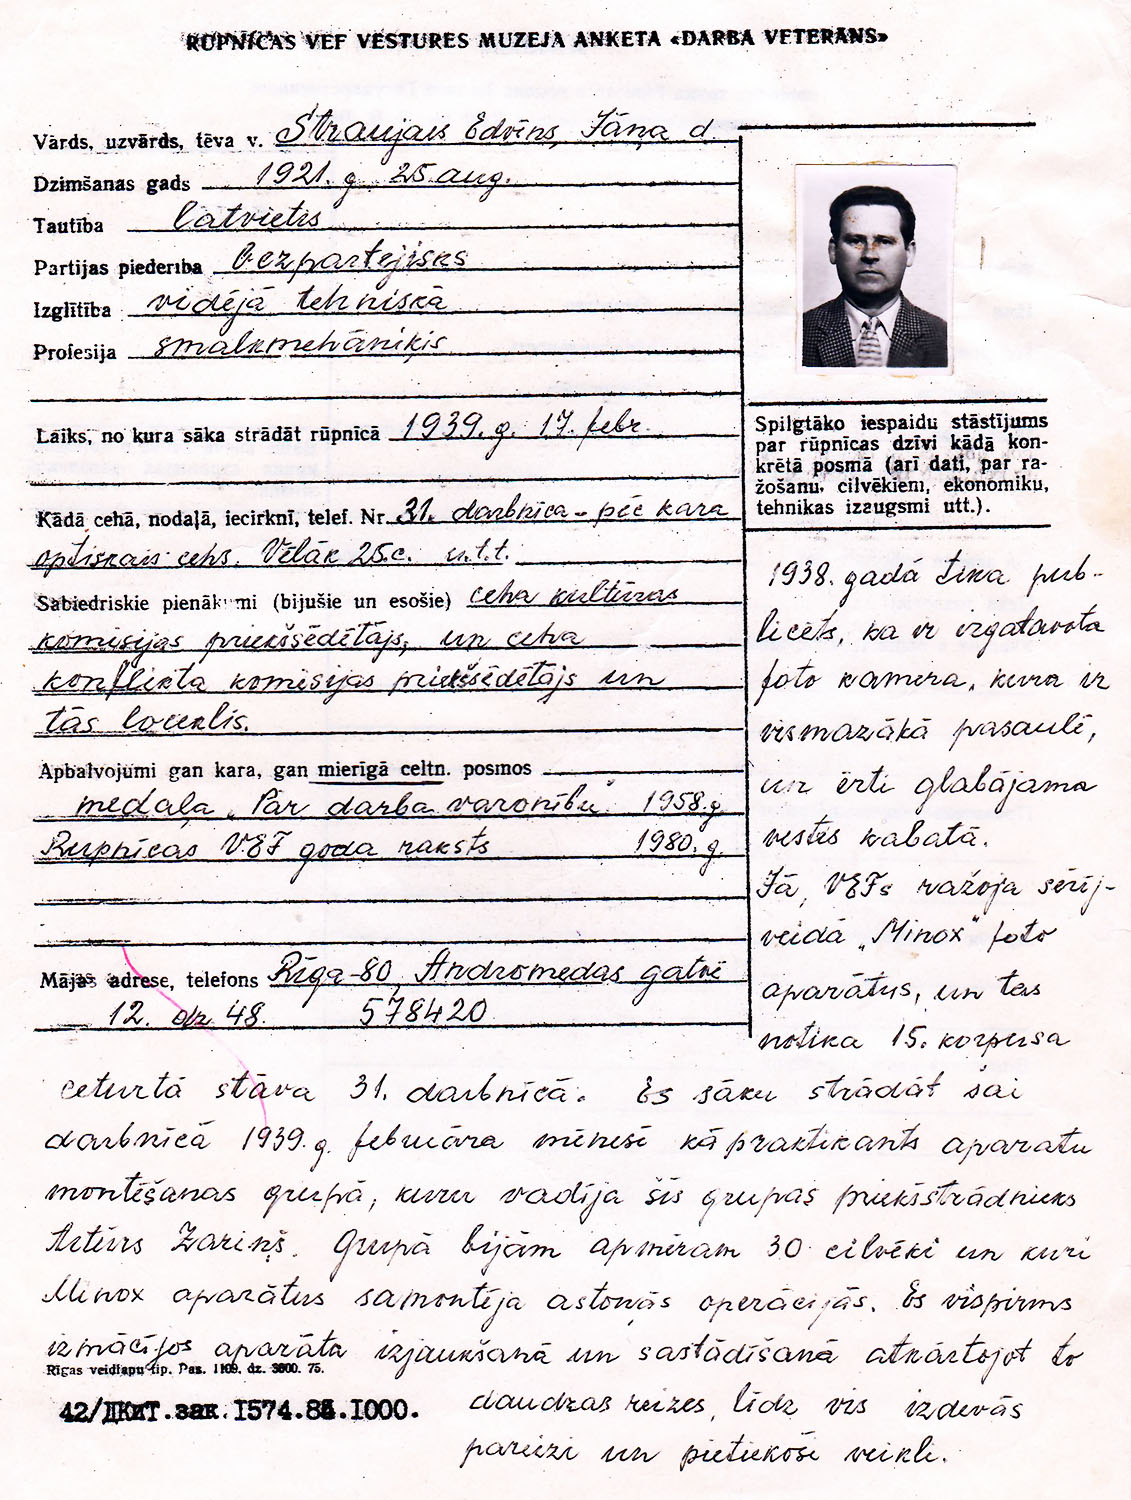 RŪPNĪCAS VEF VĒSTURES MUZEJA ANKETA «DARBA VETERĀNS»
Vārds, uzvārds, tēva v. Straujais Edvīns, Jāņa d.
Dzimšanas gads 1921. g. 25 aug.
Tautība latvietis
Partijas piederība bezpartejisks
Izglītība vidējā tehniskā
Profesija smalkmehāniķis
Laiks, no kura sāka strādāt rūpnīcā 1939. g. 17. febr.
Kādā cehā, nodaļā, iecirknī, telef. Nr. 31. darbnīca - pēc kara
optiskais cehs. Vēlāk 25.c. u.t.t.
Sabiedriskie pienākumi (bijušie un esošie) ceha kultūras
komisijas priekšsēdētājs, un ceha
konflikta komisijas priekšsēdētājs un
tās loceklis.
Apbalvojumi gan kara, gan mierīgā celtn. posmos
medaļa „Par darba varonību" 1958.g.
Rupnīcas VEF goda raksts 1980. g.
Mājas adrese, telefons Rīga-80, Andromedas gatvē
12. dz 48. 578420
Spilgtāko iespaidu stāstījums
par rūpnīcas dzīvi kādā kon-
krētā posmā (arī dati, par ra-
žošanu, cilvēkiem, ekonomiku,
tehnikas izaugsmi utt.).
1938. gadā tika pub-
licēts, ka ir izgatavota
foto kamera, kura ir
vismazākā pasaulē,
un ērti glabājama
vestes kabatā.
Jā, VEFs ražoja sērij-
veidā „Minox" foto
aparātus, un tas
notika 15. korpusa
ceturtā stāva 31. darbnīcā. Es sāku strādāt šai
darbnīcā 1939. g. februāra mēnesī kā praktikants aparatu
montēšanas grupā, kuru vadīja šīs grupas priekšstrādnieks
Artūrs Zariņš. Grupā bijām apmēram 30 cilvēki un kuri
Minox aparātus samontēja astoņās operācijās. Es vispirms
izmācījos aparāta izjaukšanā un sastādīšanā atkārtojot to
daudzas reizes, līdz vis izdevās
pareizi un pietiekoši veikli.
Rīgas veidlapu tip. Pas. 1109. dz. 3600. 75.
42/ДКиТ.зак.I574.86.I000.